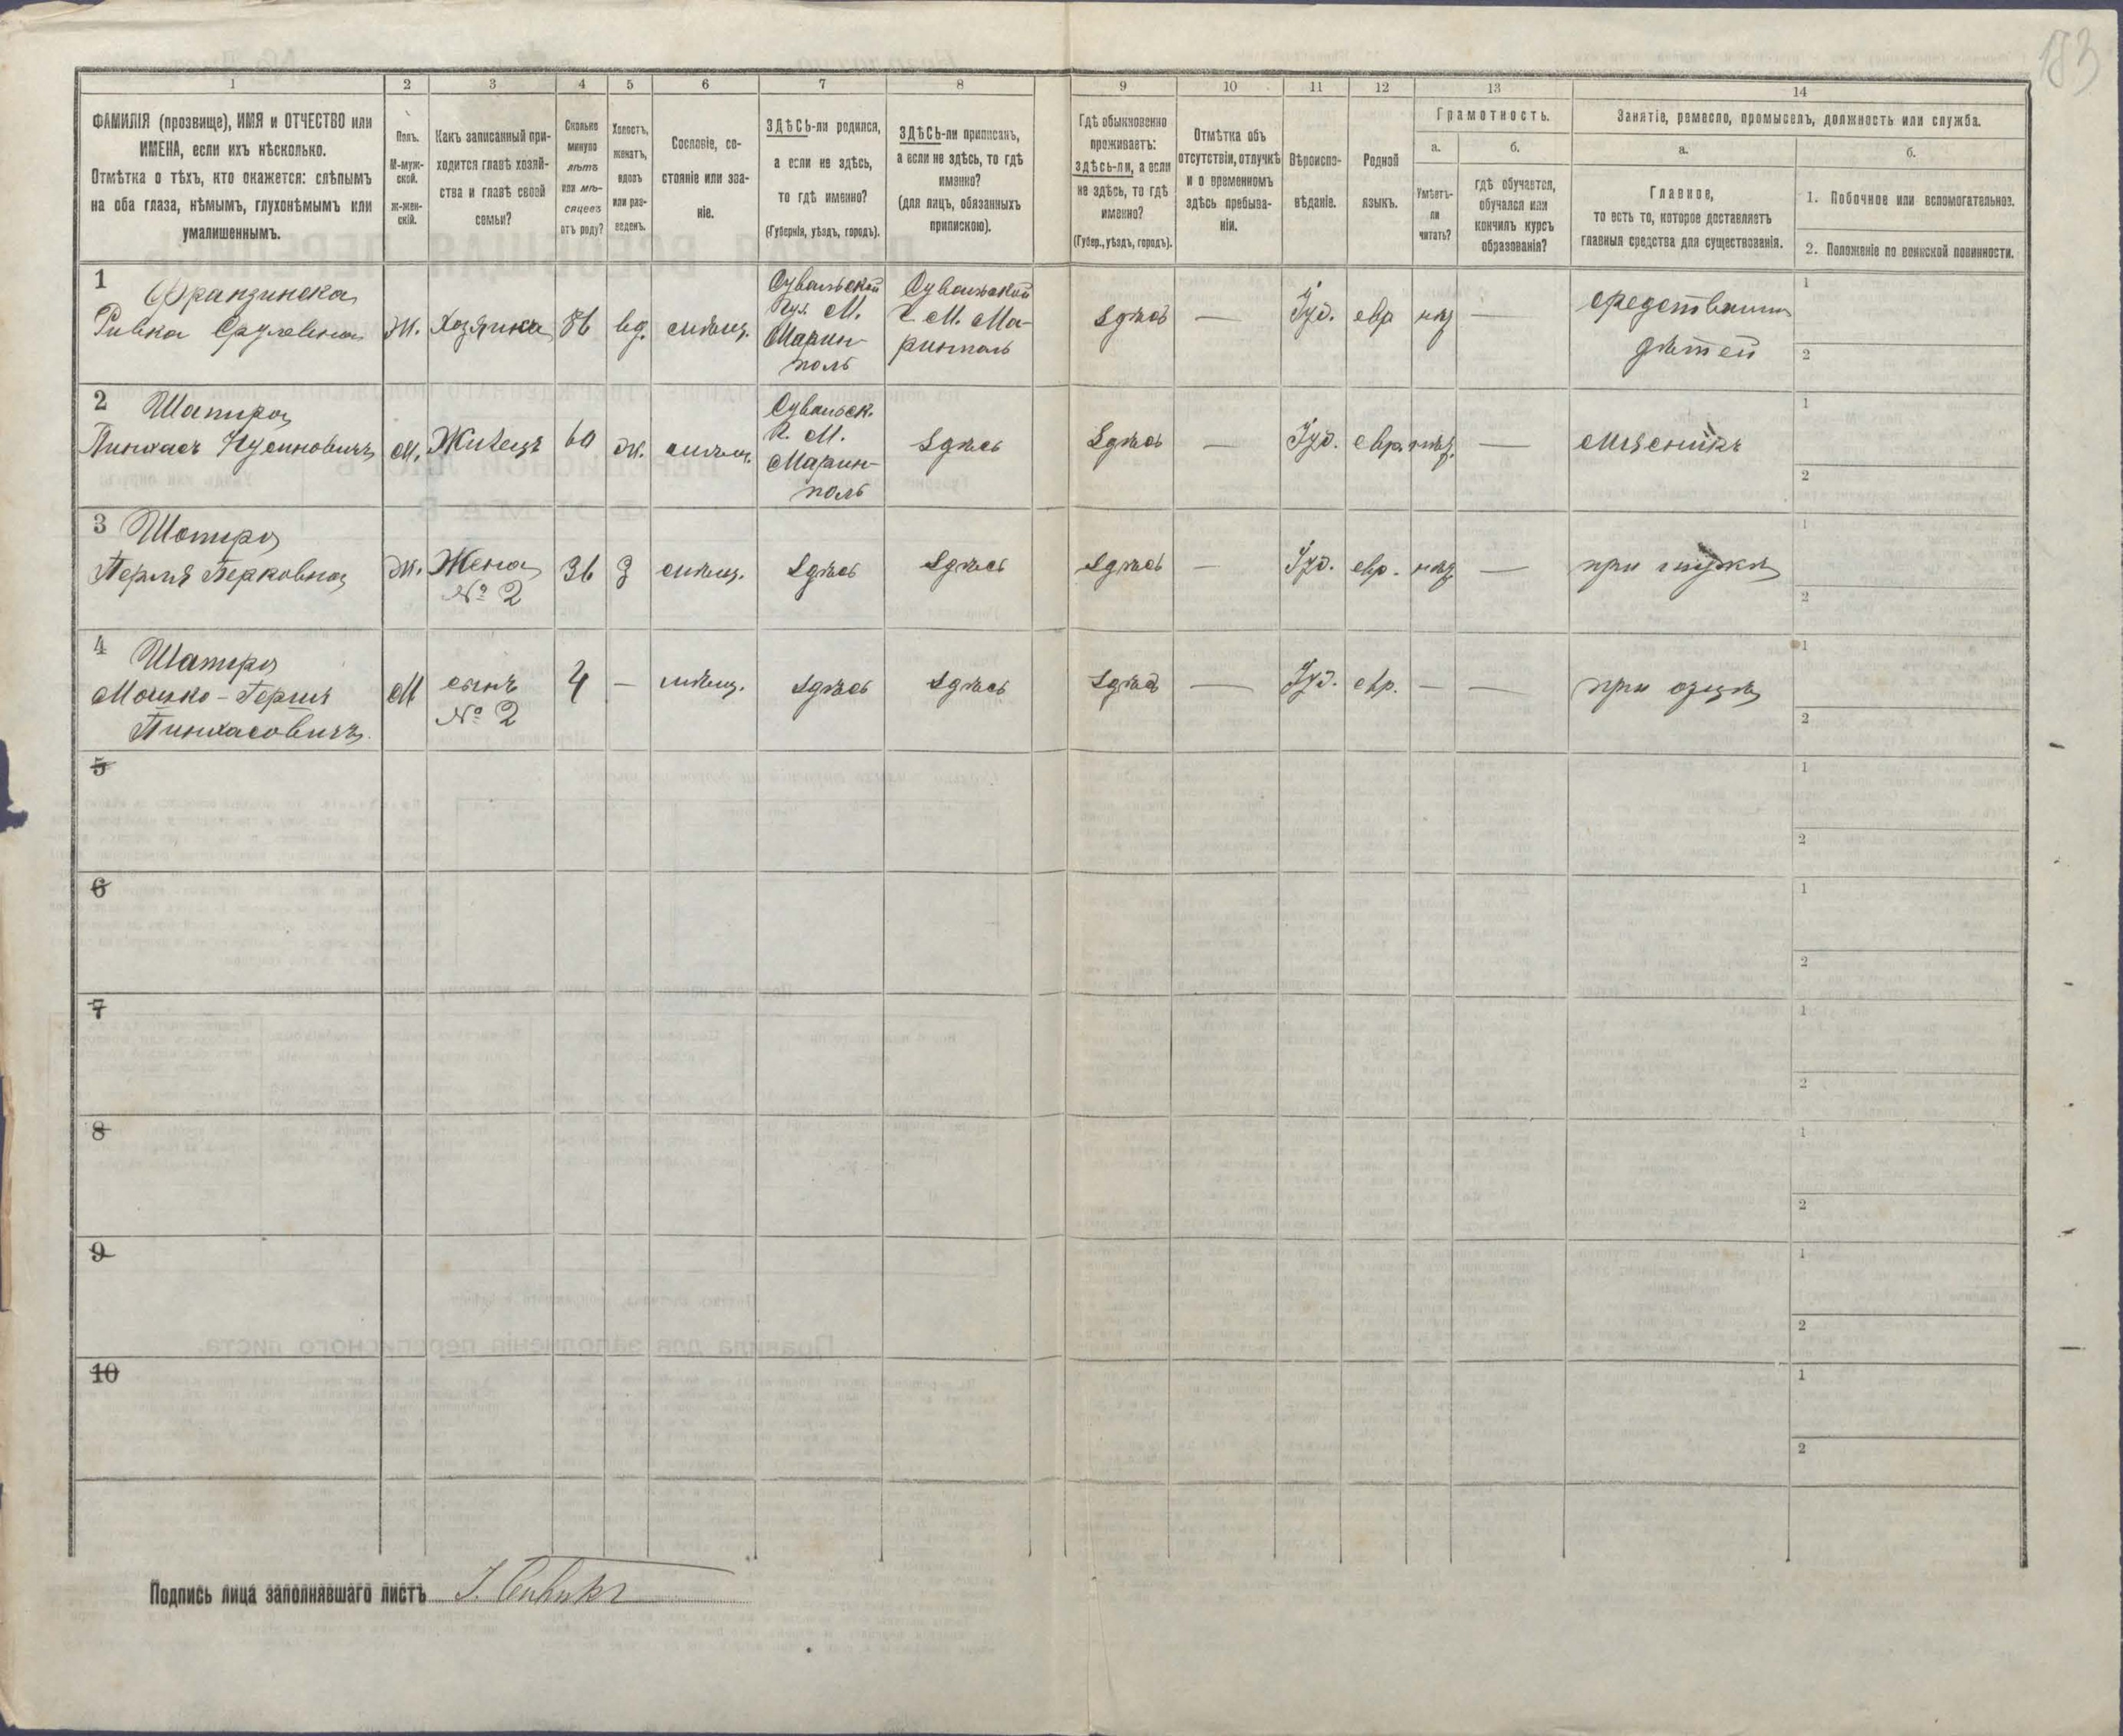 183
1 2 3 4 5 6 7 8 9 10 11 12 13 14
ФАМИЛІЯ (прозвище), ИМЯ и ОТЧЕСТВО или
ИМЕНА, если ихъ нѣсколько.
Отмѣтка о тѣхъ, кто окажется: слѣпымъ
на оба глаза, нѣмымъ, глухонѣмымъ или
умалишеннымъ.
Полъ.
М-муж-
ской.
ж-жен-
скій.
Какъ записанный при-
ходится главѣ хозяй-
ства и главѣ своей
семьи?
Сколько
минуло
лѣтъ
или мѣ-
сяцевъ
отъ роду?
Холостъ,
женатъ,
вдовъ
или раз-
веденъ.
Сословіе, со-
стояніе или зва-
ніе.
ЗДѢСЬ-ли родился,
а если не здѣсь,
то гдѣ именно?
(Губернія, уѣздъ, городъ).
ЗДѢСЬ-ли приписанъ,
а если не здѣсь, то гдѣ
именно?
(для лицъ, обязанныхъ
припискою).
Гдѣ обыкновенно
проживаетъ:
здѣсь-ли, а если
не здѣсь, то гдѣ
именно?
(Губер., уѣздъ, городъ).
Отмѣтка объ
отсутствіи, отлучкѣ
и о временномъ
здѣсь пребыва-
ніи.
Вѣроиспо-
вѣданіе.
Родной
языкъ.
Грамотность.
а.
Умѣетъ-
ли
читать?
б.
гдѣ обучается,
обучался или
кончилъ курсъ
образованія?
Занятіе, ремесло, промыселъ, должность или служба.
а.
Главное,
то есть то, которое доставляетъ
главныя средства для существованія.
б.
1. Побочное или вспомогательное.
2. Положеніе по воинской повинности.
1
Ривка Сруловна
ж. Хозяйка 86 вд. мѣщ.
Сувалской
Губ. М.
Мариям-
поль
Сувалской
Г. М. Ма-
здѣсь — Іуд. евр нѣт —
средствами
дѣтей
1
2
2 Шапиро
М. Жилецъ 60 ж. мѣщ.
Сувальск.
Г. М.
поль
здѣсь
здѣсь — Іуд. евр. нѣт. —
мясникъ
1
2
3 Шапиро
Перля Берковна
ж. Жена
№ 2
36 з мѣщ. здѣсь здѣсь здѣсь — Іуд. евр. нѣт —
при мужѣ
1
2
4 Шапиро
Мошко-Гершъ
Пинхасовичъ
М сынъ
№ 2
4 — мѣщ. здѣсь здѣсь здѣсь — Іуд. евр. — —
при отцѣ
1
2
5
1
2
6
1
2
7
1
2
8
1
2
9
1
2
10
1
2
Подпись лица заполнявшаго листъ